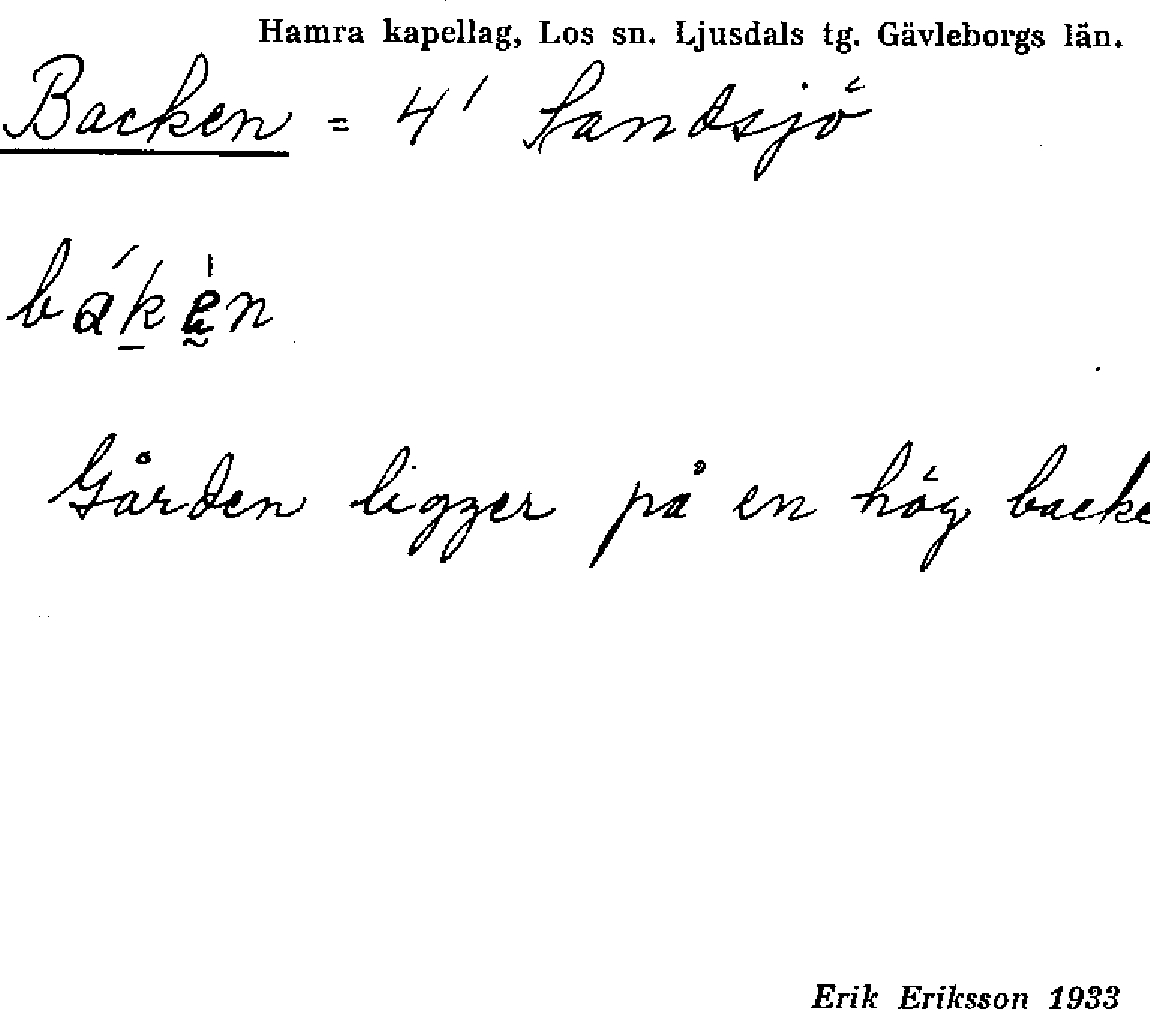 Hamra kapellag, Los sn. Ljusdals tg. Gävleborgs län.
Backen = 4' Sandsjö
Gården ligger på en hög backe
Erik Eriksson 1933